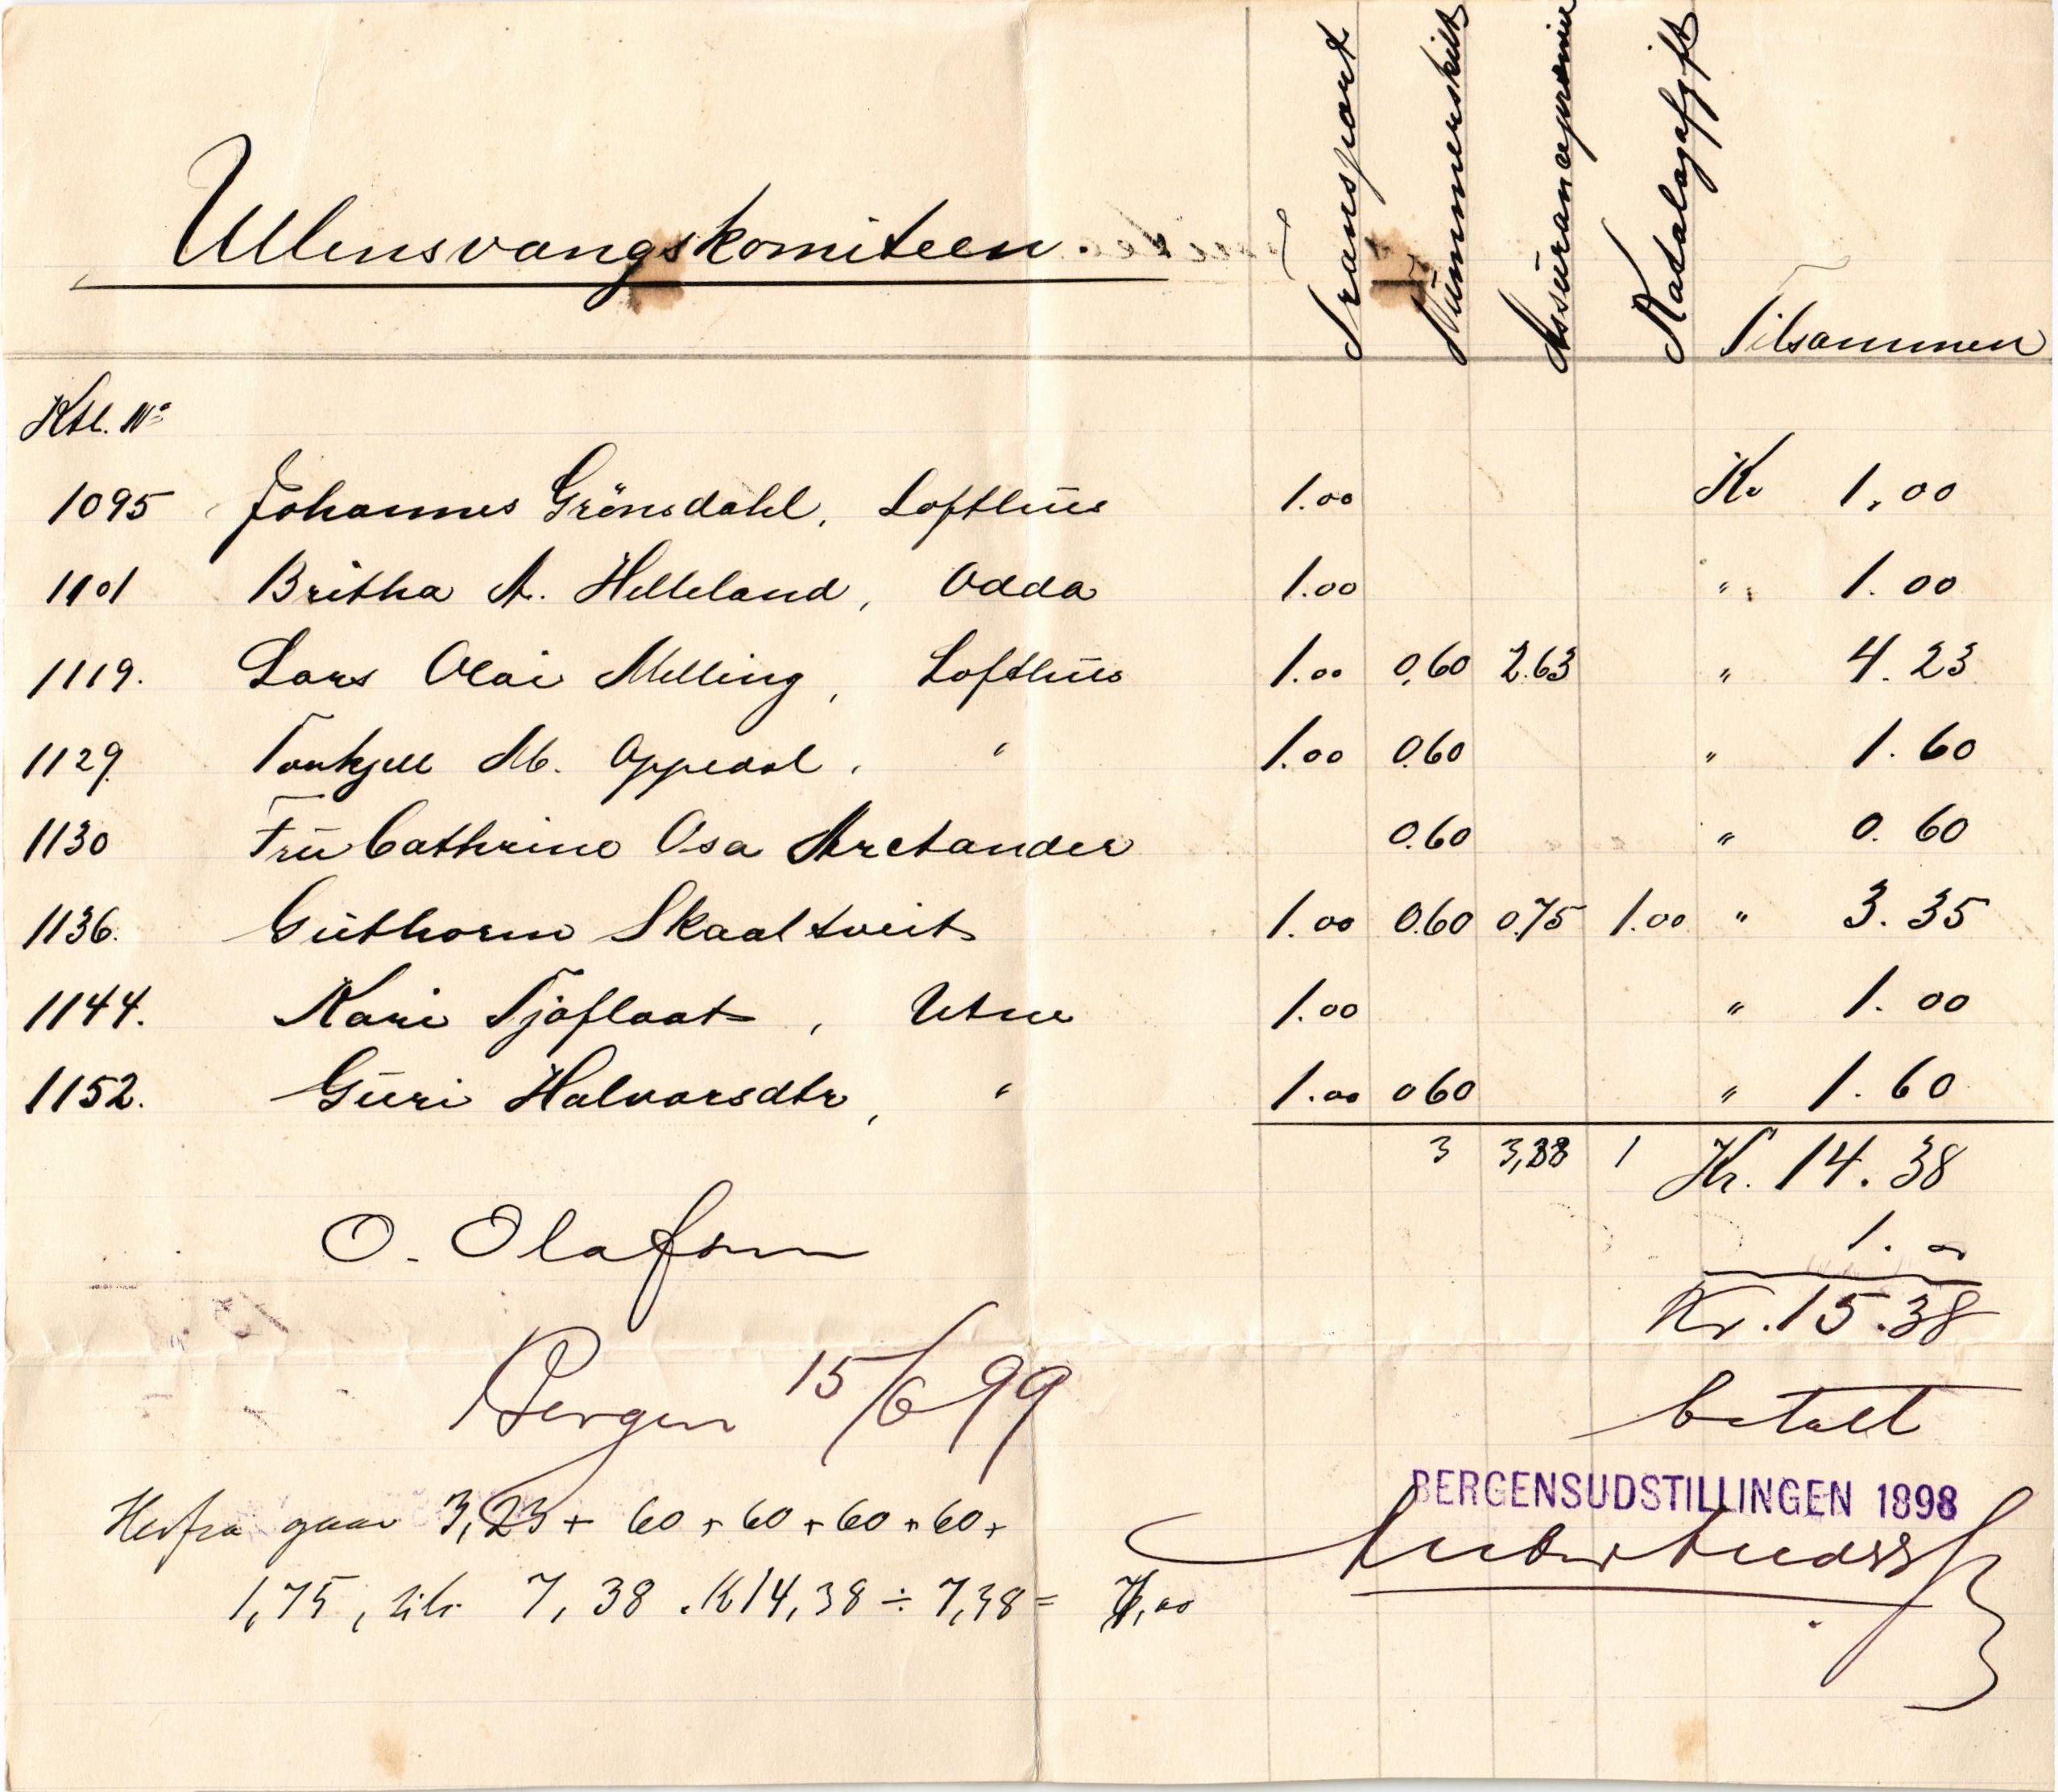 Ullensvangskomiteen.
Transport Nummerskilt Assurancepræmie Katalogafgift Tilsammen
Ktl. No
1095 Johannes Grönsdahl, Lofthus 1.00 Kr 1,00
1101 Britha A. Helleland, Odda 1.00 " 1.00
1119. Lars Olai Melling, Lofthus 1.00 0.60 2.63 " 4.23
1129. Torkjell M. Oppedal, " 1.00 0.60 " 1.60
1130 Fru Cathrine Osa Arctander 0.60 " 0.60
1136. Guthorm Skaaltveit 1.00 0.60 0.75 1.00 " 3.35
1144. Kari Tjoflaat, Utne 1.00 " 1.00
1152. Guri Halvorsdtr, " 1.00 060 " 1.60
3 3,38 1 Kr. 14.38
O. Olafsen 1.00
Kr. 15.38
Bergen 15/6 99 betalt
BERGENSUDSTILLINGEN 1898
Herfra gaar 3,23 + 60 + 60 + 60 + 60 +
1,75, tils. 7,38. K 14,38 ÷ 7,38 = 7,00